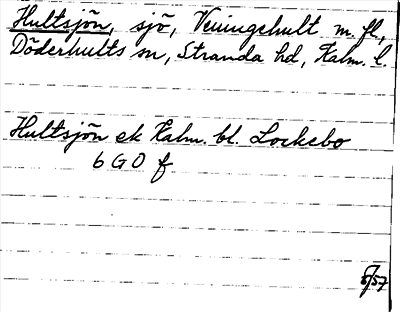 Hultsjön, sjö, Veningehult m. fl.,
Döderhults sn, Stranda hd, Kalm. l.
Hultsjön ek Kalm. bl. Lockebo
6 G 0 f
5/57